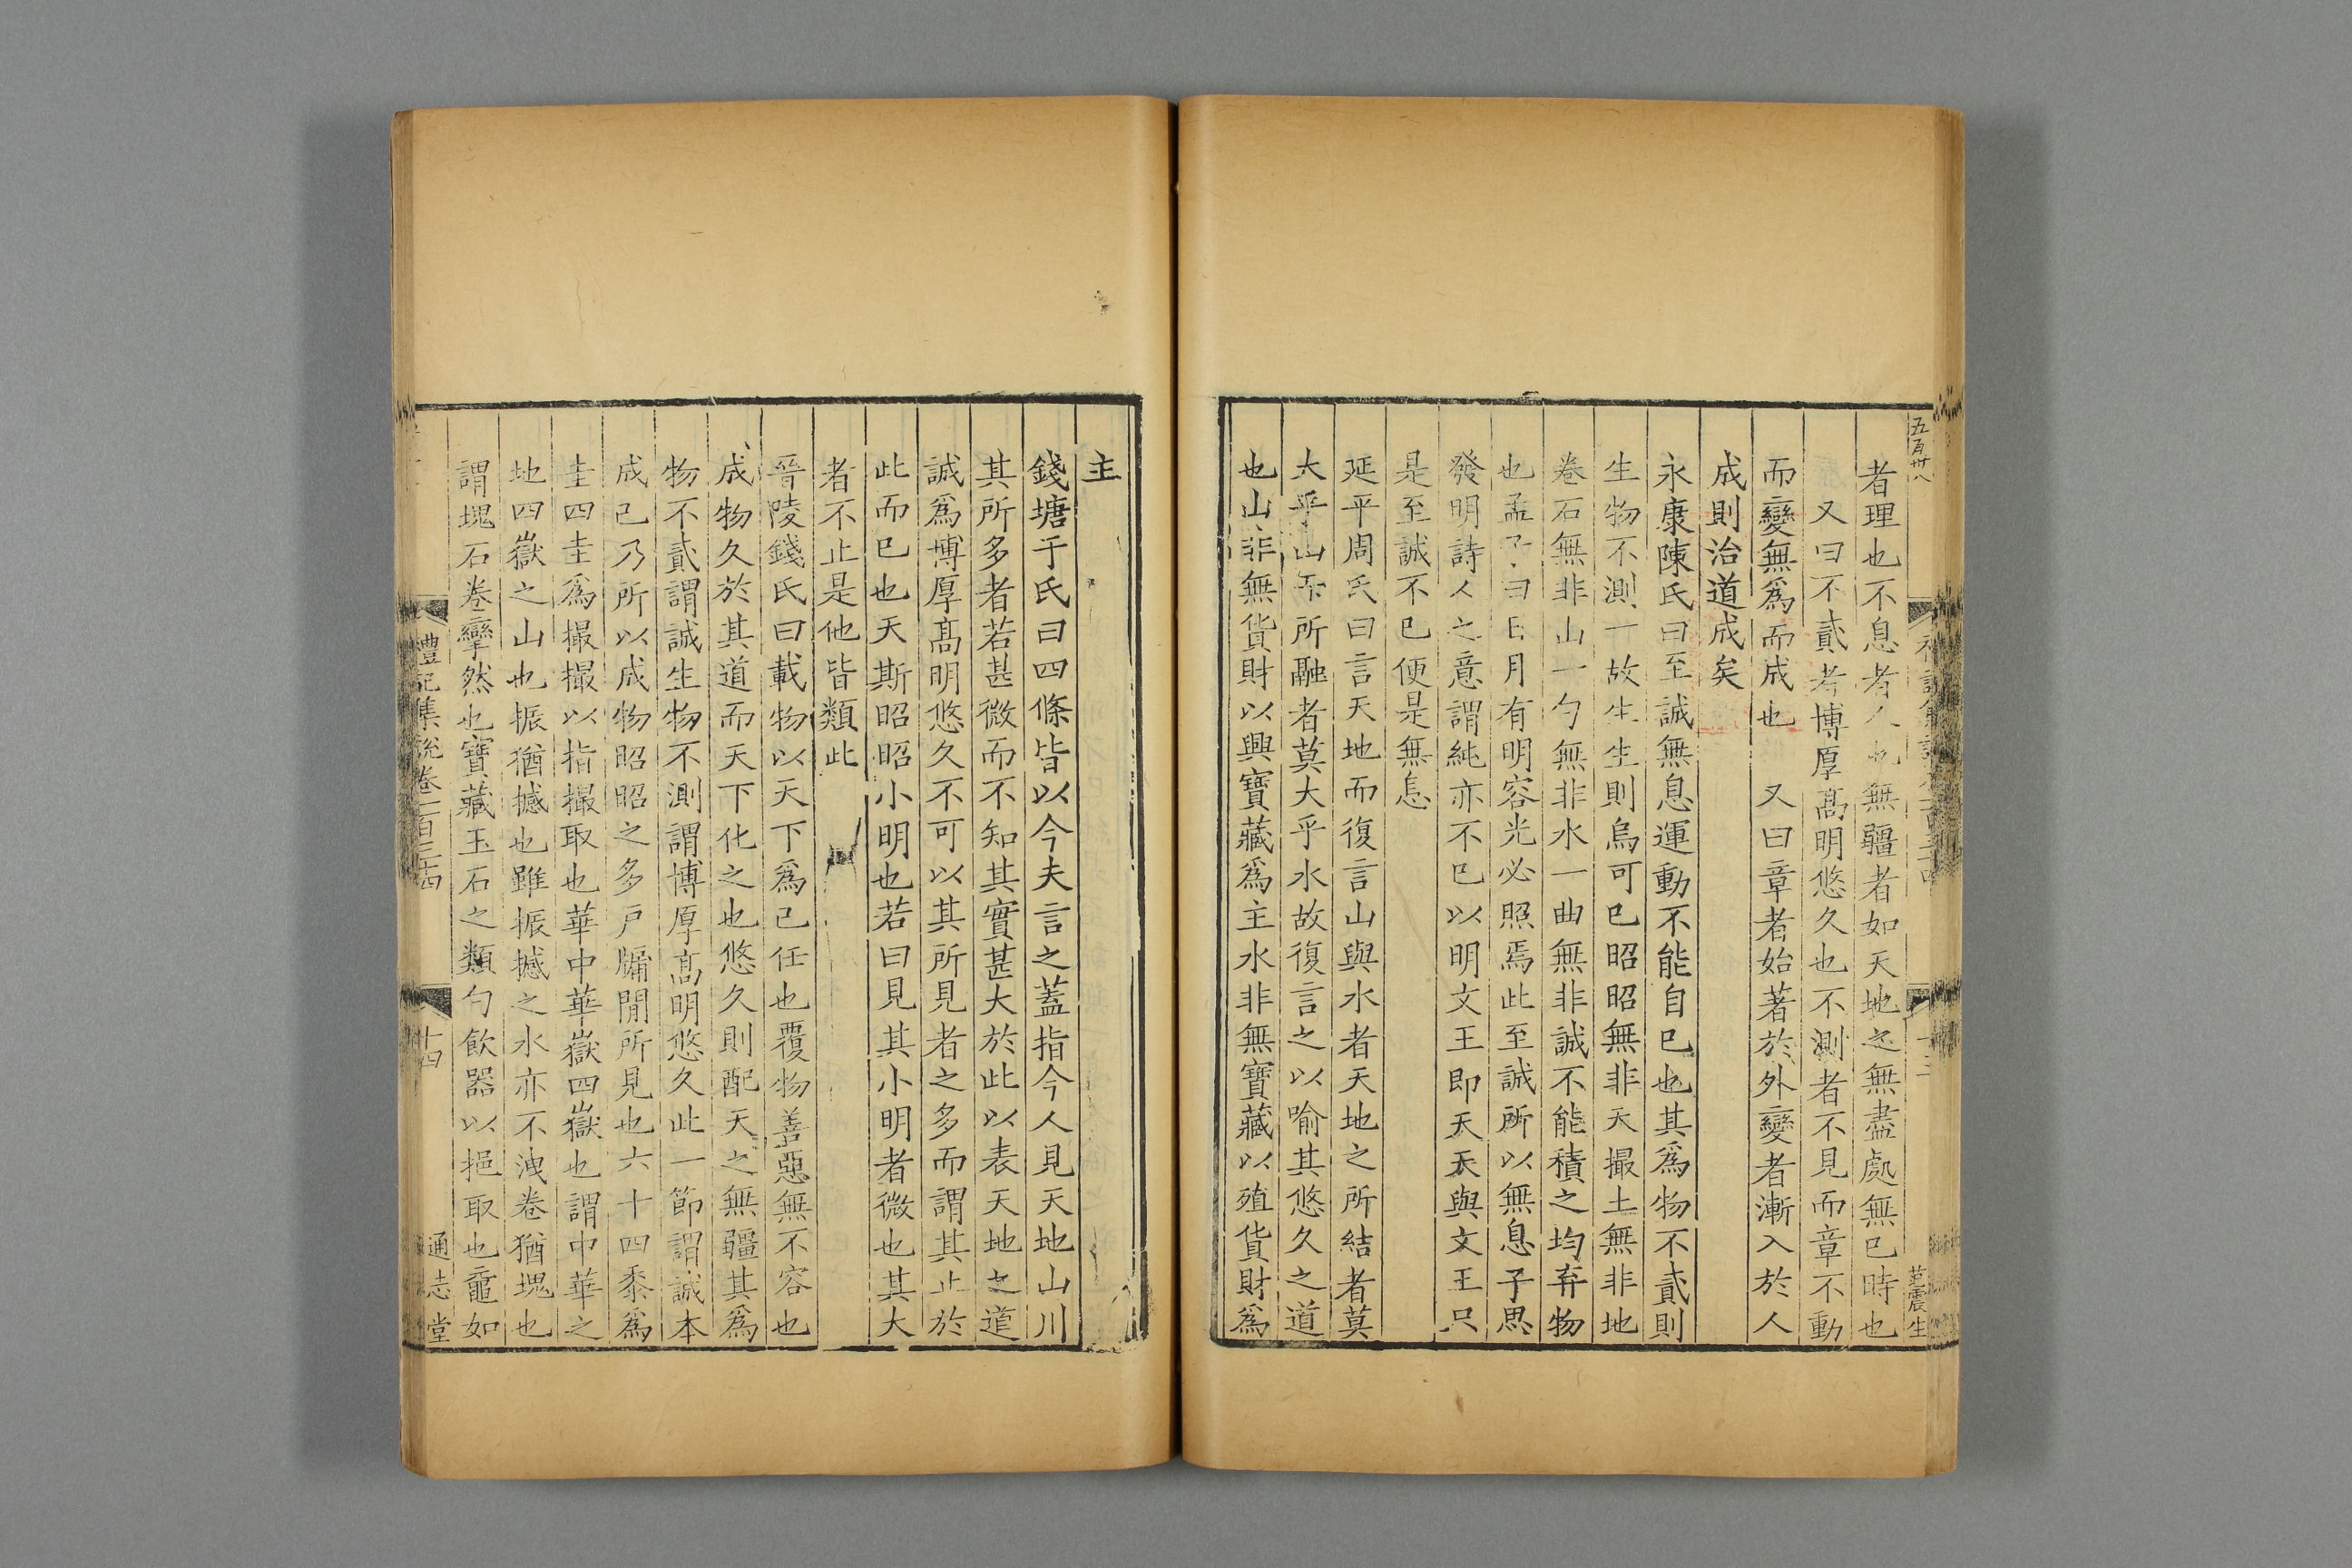 五百卅八
者理也不息者人也無疆者如天地之無盡處無已時也
又曰不貳者博厚高明悠久也不測者不見而章不動
而變無爲而成也　又曰章者始著於外變者漸入於人
成則治道成矣
永康陳氏曰至誠無息運動不能自已也其爲物不貳則
生物不測一故生生則烏可已昭昭無非天撮土無非地
卷石無非山一勺無非水一曲無非誠不能積之均弃物
也孟子曰日月有明容光必照焉此至誠所以無息子思
發明詩人之意謂純亦不已以明文王即天天與文王只
是至誠不已便是無息
延平周氏曰言天地而復言山與水者天地之所結者莫
大乎山而所融者莫大乎水故復言之以喻其悠久之道
也山非無貨財以興寶藏爲主水非無寶藏以殖貨財爲
主
錢塘于氏曰四條皆以今夫言之蓋指今人見天地山川
其所多者若甚微而不知其實甚大於此以表天地之道
誠爲博厚高明悠久不可以其所見者之多而謂其止於
此而已也天斯昭昭小明也若曰見其小明者微也其大
者不止是他皆類此
晉陵錢氏曰載物以天下爲己任也覆物善惡無不容也
成物久於其道而天下化之也悠久則配天之無疆其爲
物不貳謂誠生物不測謂博厚高明悠久此一節謂誠本
成己乃所以成物昭昭之多戸牖閒所見也六十四黍爲
圭四圭爲撮撮以指撮取也華中華嶽四嶽也謂中華之
地四嶽之山也振猶撼也雖振撼之水亦不洩卷猶塊也
謂塊石卷攣然也寶藏玉石之類勺飲器以挹取也黿如
禮記集說卷一百三十四
十四
通志堂